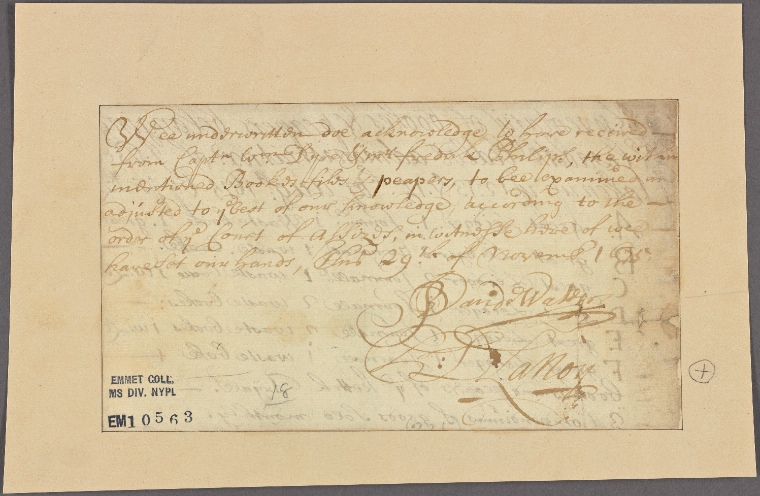 Wee underwritten doe acknowledge to have received
from Capt Wm & Fredrk Philips, the with in
mentioned Bookes files & peapers, to bee Examined
adjusted to ye best of our knowledge according to the
order of ye Court of Assizes, in witnesse hereof wee
have set our hands, this 29th of Novemb
EMMET COLL.
MS DIV. NYPL
18
EM10563